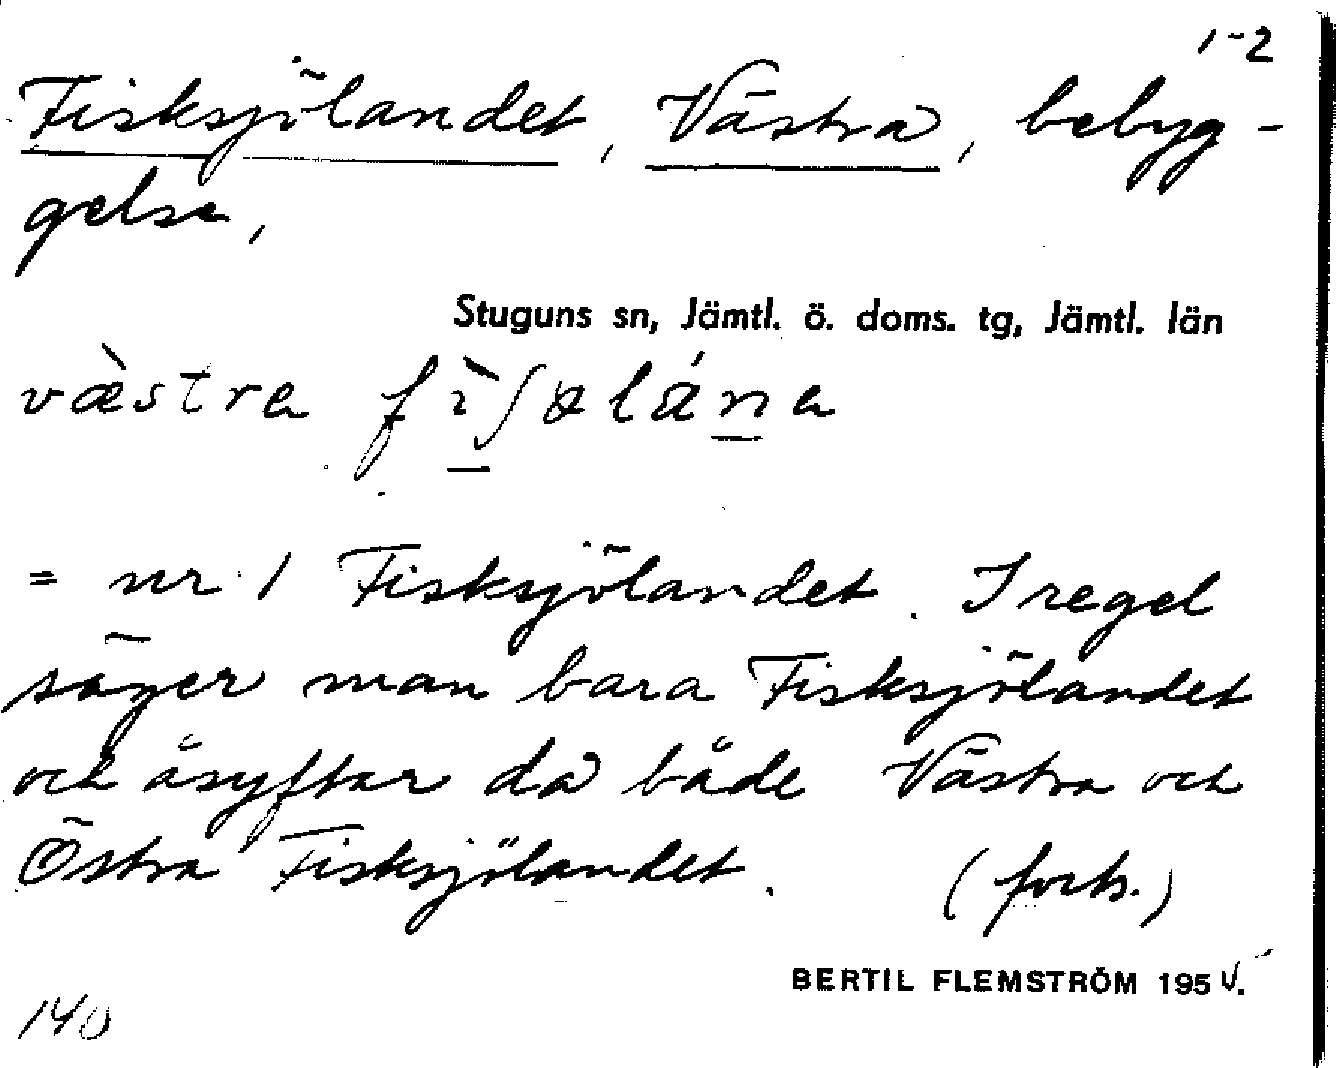 1-2
Fisksjölandet, Västra, bebyg-
gelse,
Stuguns sn, Jämtl. ö. doms. tg, Jämtl. län
væ̀stra
= nr 1 Fisksjölandet. I regel
säger man bara Fisksjölandet
och åsyftar då både Västra och
Östra Fisksjölandet. (forts.)
BERTIL FLEMSTRÖM 195
140